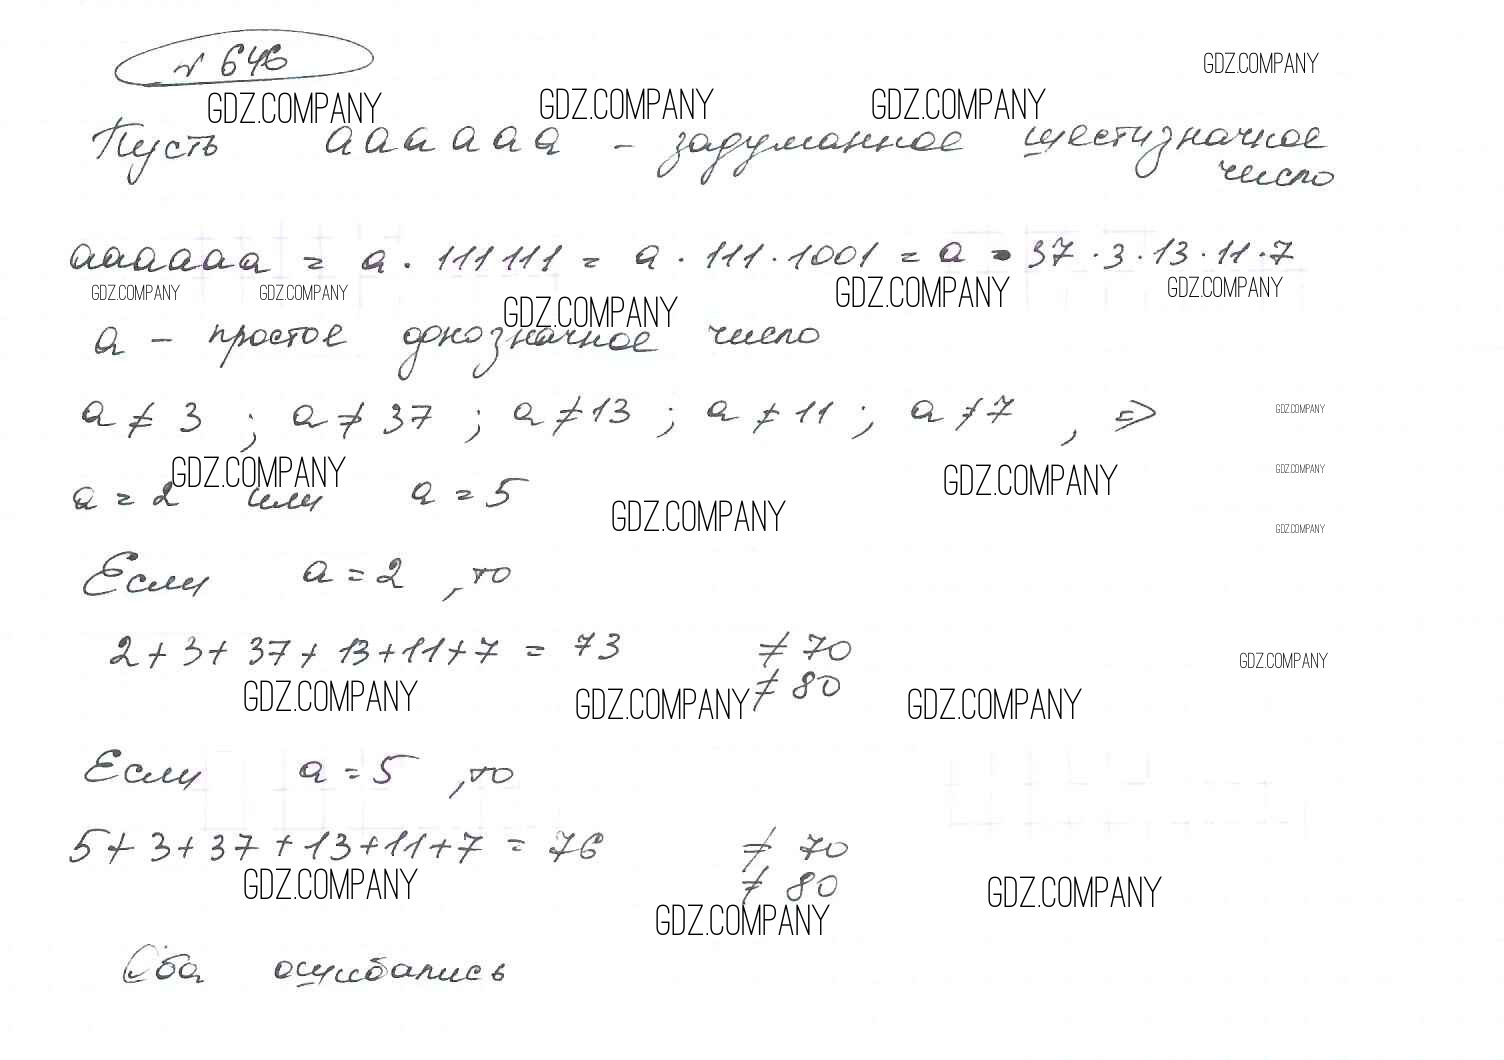 № 646
GDZ.COMPANY
GDZ.COMPANY GDZ.COMPANY GDZ.COMPANY
Пусть аааааа - задуманное шестизначное
число
аааааа = а · 111111 = а · 111 · 1001 = а · 37 · 3 · 13 · 11 · 7
GDZ.COMPANY GDZ.COMPANY GDZ.COMPANY GDZ.COMPANY GDZ.COMPANY
а - простое однозначное число
а ≠ 3 ; а ≠ 37 ; а ≠ 13 ; а ≠ 11 ; а ≠ 7 , ⇒
GDZ.COMPANY
GDZ.COMPANY GDZ.COMPANY GDZ.COMPANY
а = 2 или а = 5
GDZ.COMPANY GDZ.COMPANY
Если а = 2 , то
2 + 3 + 37 + 13 + 11 + 7 = 73 ≠ 70
GDZ.COMPANY
≠ 80
GDZ.COMPANY GDZ.COMPANY GDZ.COMPANY
Если а = 5 , то
5 + 3 + 37 + 13 + 11 + 7 = 76 ≠ 70
≠ 80
GDZ.COMPANY GDZ.COMPANY GDZ.COMPANY
Оба ошибались